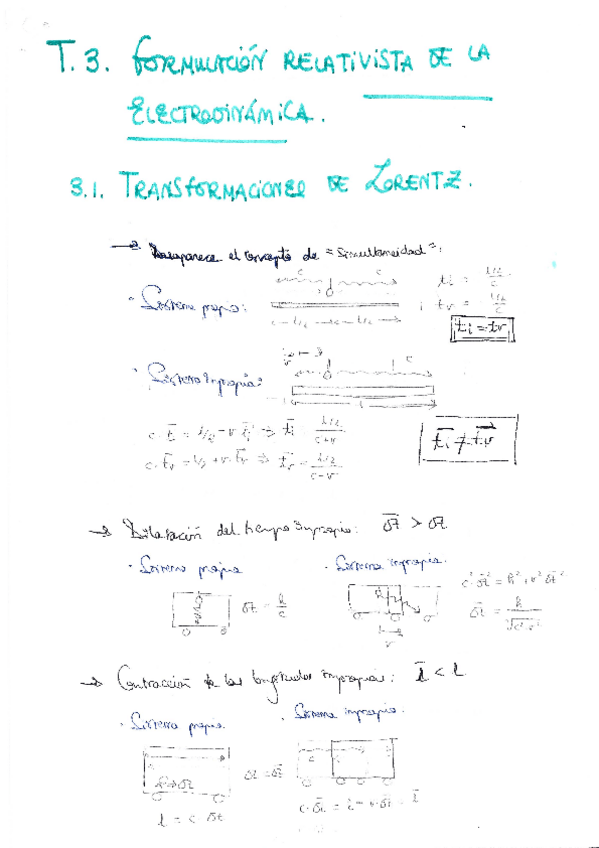 T.3. FORMULACIÓN RELATIVISTA DE LA
ELECTRODINÁMICA.
3.1. TRANSFORMACIONES DE LORENTZ.
→ Desaparece el concepto de "Simultaneidad":
· Sistema propio:
ti = L/2 / c
tv = L/2 / c
ti = tv
· Sistema Impropio:
c·t̄i = L/2 - v t̄i ⇒ t̄i = L/2 / c+v
c·t̄v = L/2 + v·t̄v ⇒ t̄v = L/2 / c-v
t̄i ≠ t̄v
→ Dilatación del tiempo impropio: δt̄ > δt
· Sistema propio
δt = h/c
· Sistema impropio.
c²·δt̄² = h² + v² δt̄²
δt̄ = h / √c²-v²
→ Contracción de las longitudes impropias: l̄ < l
· Sistema propio.
l = c·δt
· Sistema impropio.